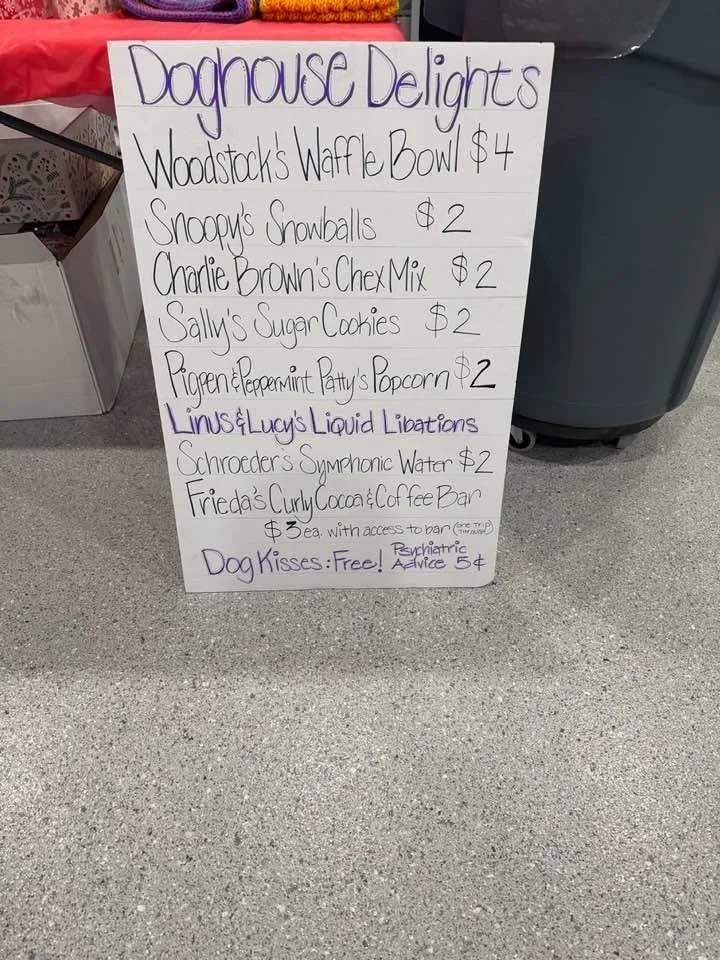 Doghouse Delights
Woodstock's Waffle Bowl $4
Snoopy's Snowballs $2
Charlie Brown's Chex Mix $2
Sally's Sugar Cookies $2
Pigpen & Peppermint Patty's Popcorn $2
Linus & Lucy's Liquid Libations
Schroeder's Symphonic Water $2
Frieda's Curly Cocoa & Coffee Bar
$3 ea. with access to bar (one trip through)
Dog Kisses: Free! Psychiatric Advice 5¢